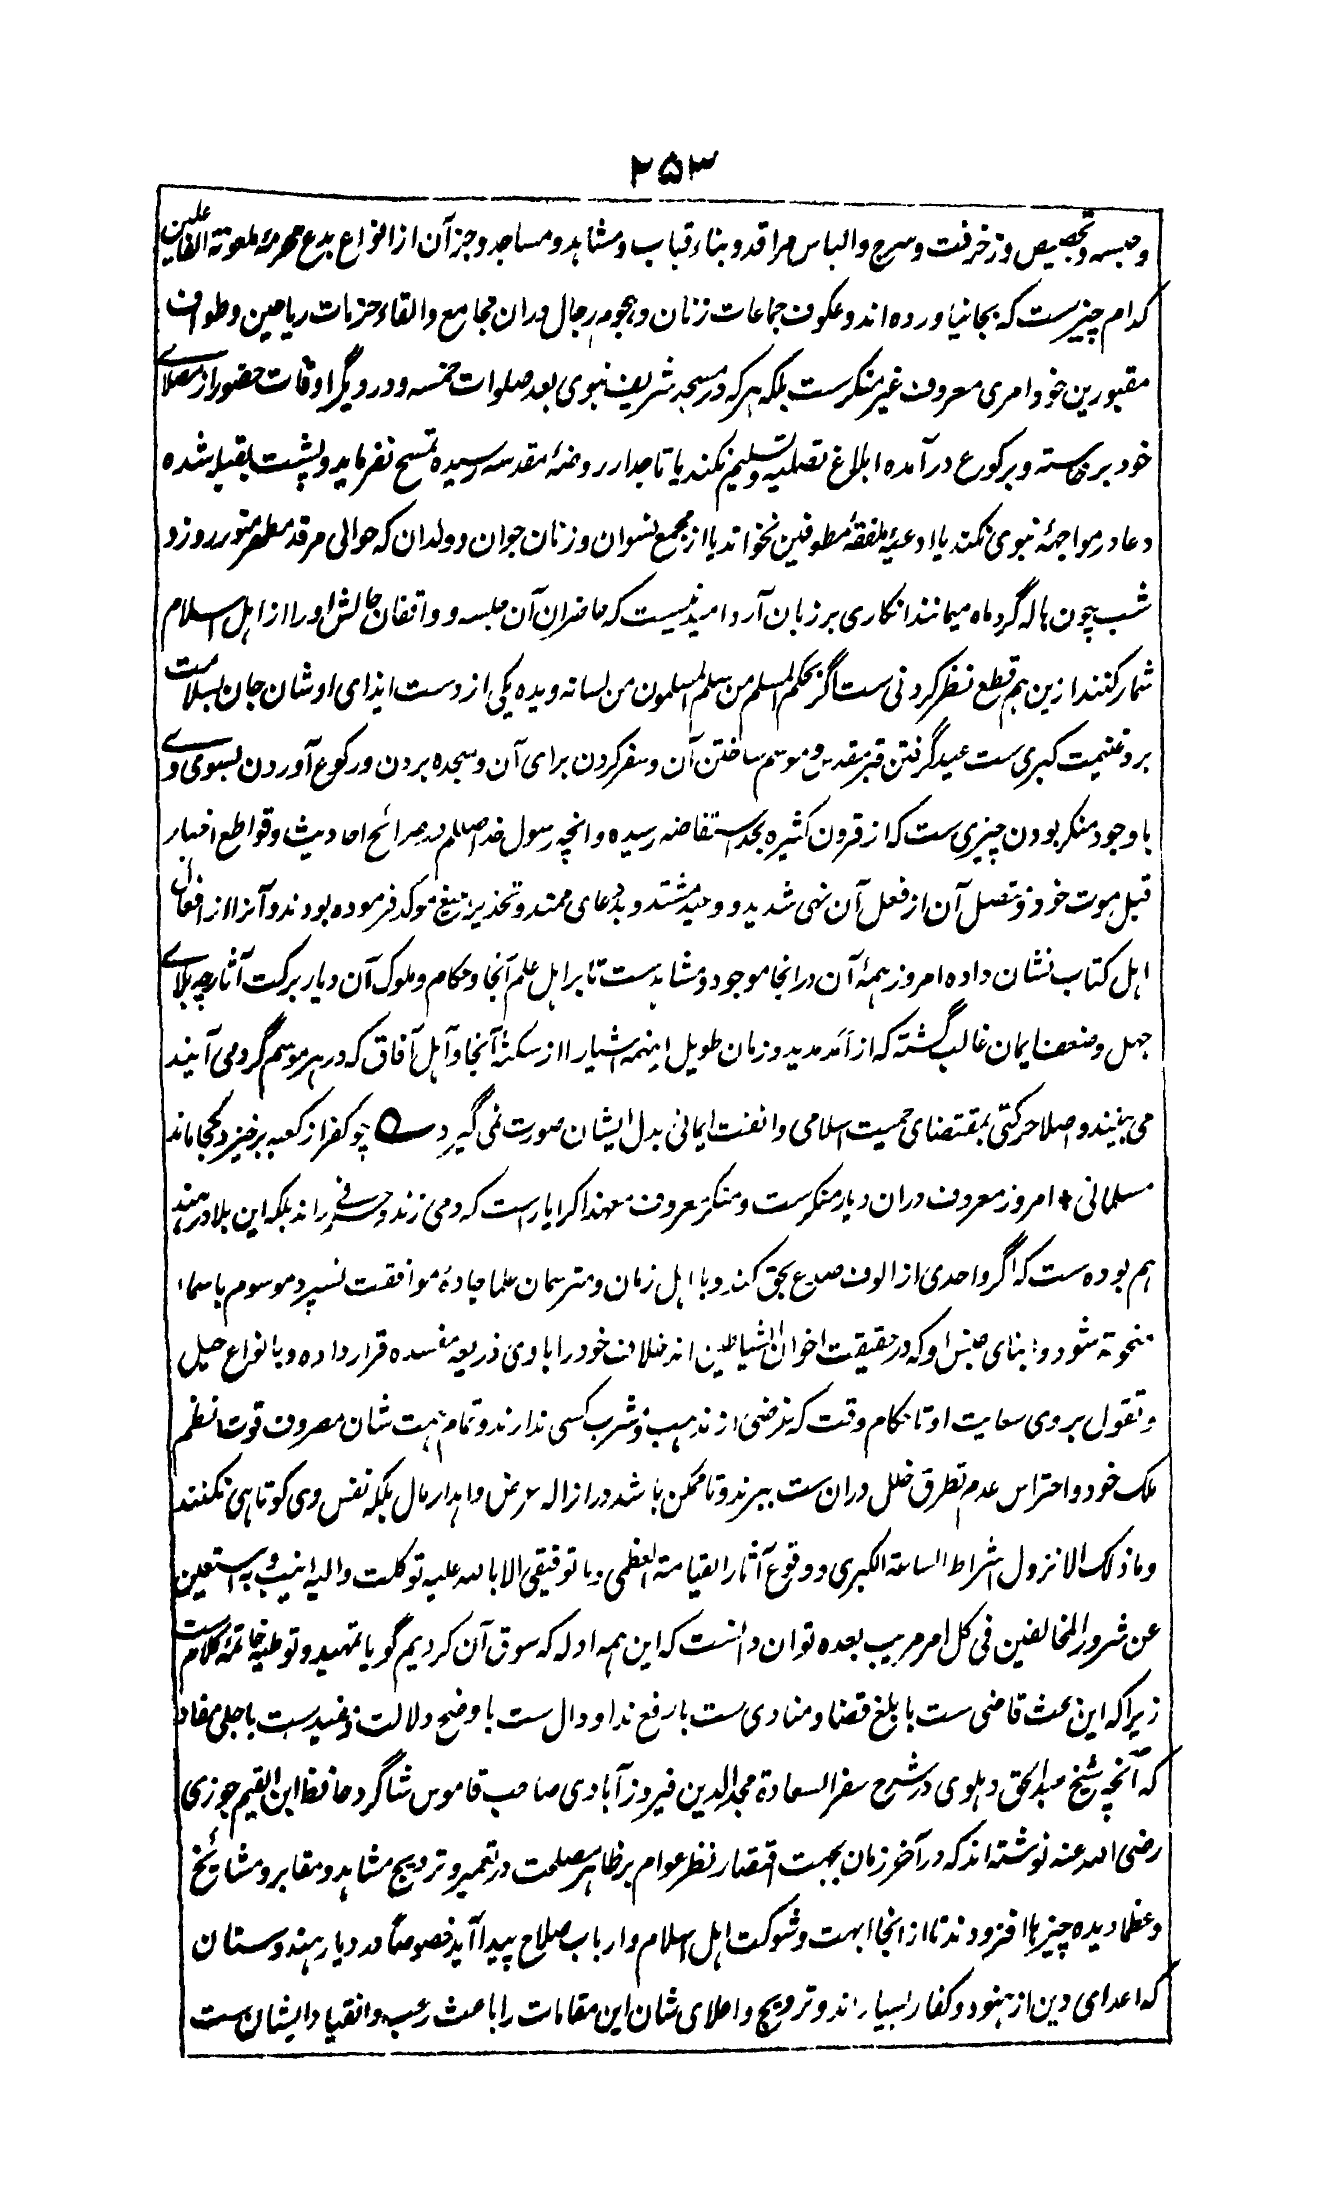 ۲۵۳
و جبسه و تجصیص و زخرفت و سرج و الباس مراقد و بناء قباب و مشاهد و مساجد و جز آن از انواع بدع محرمهٔ ملعونة الفاعلین
کدام چیزست که بجا نیاورده‌اند و عکوف جماعات زنان و هجوم رجال دران مجامع و القاء حزمات ریاحین و طواف
مقبورین خود امری معروف غیر منکرست بلکه هر که در مسجد شریف نبوی بعد صلوات خمسه و در دیگر اوقات حضور از مصلای
خود برخاسته و برکوع درآمده ابلاغ تصلیه و تسلیم نکند یا تا جدار روضهٔ مقدسه رسیده تمسح نفرماید و پشت بقبله شده
دعا در مواجههٔ نبوی نکند یا ادعیهٔ ملفقهٔ مطوفین نخواند یا از مجمع نسوان و زنان جوان و ولدان که حوالی مرقد مطهر منور روز و
شب چون هاله گرد ماه میمانند انکاری بر زبان آرد امید نیست که حاضران آن جلسه و واقفان حالش او را از اهل اسلام
شمار کنند ازین هم قطع نظر کردنی ست اگر بحکم المسلم من سلم المسلمون من لسانه و یده یکی از دست ایذای اوشان جان بسلامت
برد غنیمت کبری ست عید گرفتن قبر مقدس و موسم ساختن آن و سفر کردن برای آن و سجده بردن و رکوع آوردن بسوی وے
با وجود منکر بودن چیزی ست که از قرون کثیره بحد استفاضه رسیده و انچه رسول خدا صلعم در صرائح احادیث و قواطع اخبار
قبل موت خود متصل آن از فعل آن نهی شدید و وعید مشتد و بدعای ممتد و تحذیر بلیغ موکد فرموده بودند و آنرا از افعال
اهل کتاب نشان داده امروز همهٔ آن درانجا موجود و مشاهدست تا بر اهل علم آنجا و حکام و ملوک آن دیار برکت آثار چه بلای
جهل و ضعف ایمان غالب گشته که از آمد مدید و زمان طویل اینهمه اشیا را از سکنهٔ آنجا و اهل آفاق که در هر موسم گرد می آیند
می بینند و اصلا حرکتی بمقتضای حمیت اسلامی و انفت ایمانی بدل ایشان صورت نمی گیرد ؎ چو کفر از کعبه برخیزد کجا ماند
مسلمانی + امروز معروف دران دیار منکرست و منکر معروف معهذا کرا یاراست که دمی زند و حرفے راند بلکه این بلا در هند
هم بوده ست که اگر واحدی از الوف صدع بحق کند و با اهل زمان و مترسمان علما جادهٔ موافقت نسپرد موسوم باسماء
منحوته شود و ابنای جنس او که در حقیقت اخوان الشیاطین اند خلاف خود را با وی ذریعه مفسده قرار داده و بانواع حیل
و تقول بر وی سعایت او تا حکام وقت که غرضی از مذهب و مشرب کسی ندارند و تمام همت شان مصروف قوت نظم
ملک خود و احتراس عدم تطرق خلل دران ست ببرند و تا ممکن باشد در ازاله عرض و اهدار مال بلکه نفس وی کوتاهی نکنند
و ما ذلک الا نزول اشراط الساعة الکبری و وقوع آثار القیامة العظمی و ما توفیقی الا بالله علیه توکلت و الیه انیب و به استعین
عن شرور المخالفین فی کل امر مریب بعده توان دانست که این همه ادله که سوق آن کردیم گویا تمهید و توطیهٔ خاتمهٔ کلام ست
زیرا که این بحث قاضی ست بابلغ قضا و منادی ست بارفع ندا و دال ست باوضح دلالت و مفیدست باجلی مفاد
که آنچه شیخ عبدالحق دهلوی در شرح سفر السعادة مجدالدین فیروزآبادی صاحب قاموس شاگرد حافظ ابن القیم جوزی
رضی الله عنه نوشته‌اند که در آخر زمان بجهت اقتصار نظر عوام بر ظاهر مصلحت در تعمیر و ترویج مشاهد و مقابر و مشائخ
و عظما دیده چیزها افزودند تا از انجا ابهت و شوکت اهل اسلام و ارباب صلاح پیدا آید خصوصاً در دیار هندوستان
که اعدای دین از هنود و کفار بسیار اند و ترویج و اعلای شان این مقامات را باعث رعب و انقیاد ایشان ست